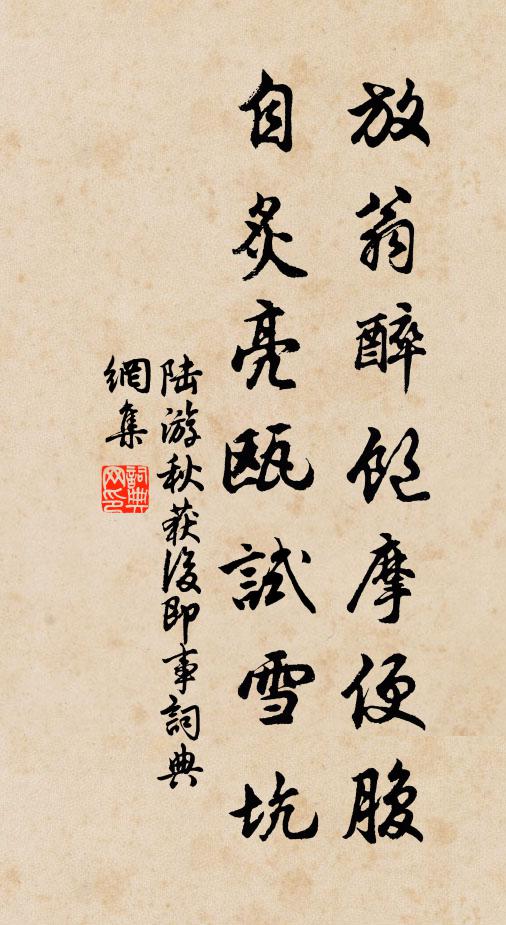 放翁醉飽摩便腹
自炙毫甌試雪坑
陆游秋获後即事詞典
網集
詞典
网印